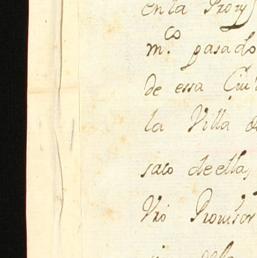 en la Prov
m.co pasado
de essa Ciu
la Villa d
sato de ella,
Vró Provisor